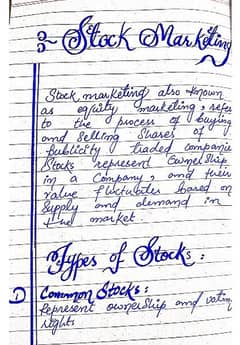 3- Stock Marketing
Stock marketing also known
as equity marketing, refer
to the process of buying
and selling shares of
publicity traded companie
Stocks represent ownership
in a company, and their
value fluctuates based on
supply and demand in
the market.
Types of Stocks:
1) Common Stocks:
Represent ownership and voting
rights